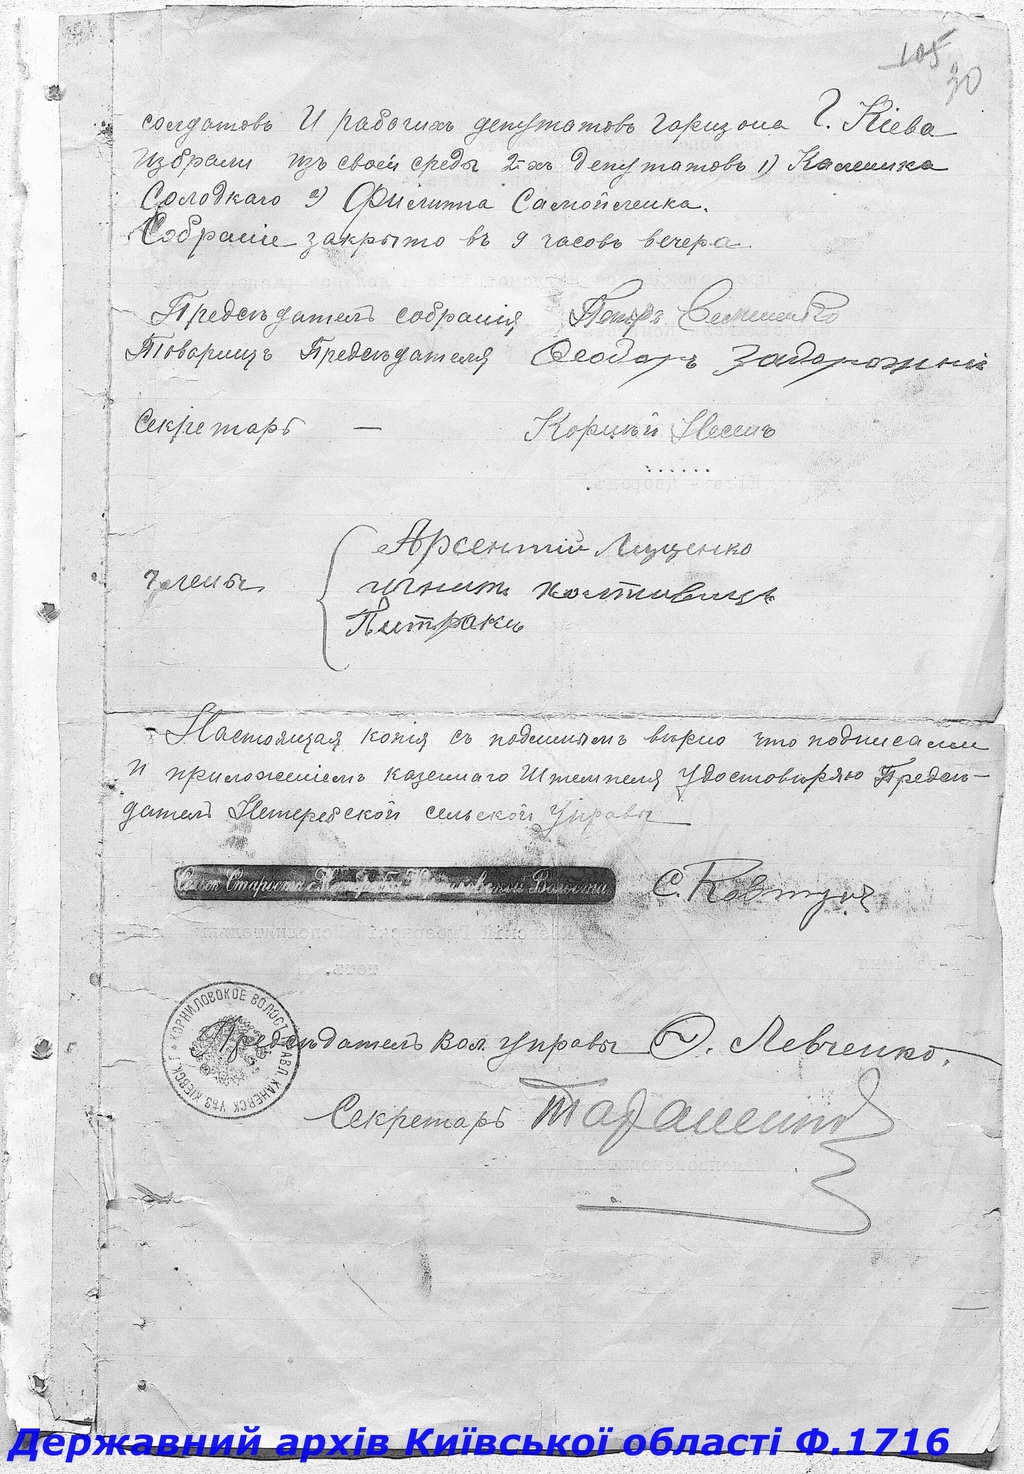 105
30
солдатовъ И рабочихъ депутатовъ Горизона Г. Кіева
избрали изъ своей среды 2-хъ депутатовъ 1) Калешика
Солодкаго 2) Филиппа Самойленка.
Собраніе закрыто въ 9 часовъ вечера
Предсѣдатель собранія Петръ
Товарищъ Предсѣдателя Феодоръ Задорожній
Секретарь — Корнѣй
Члены
Арсентій Лещенко
Игнатъ
Настоящая копія съ подлинымъ вѣрно что подписами
И приложеніемъ казеннаго Штемпеля Удостовѣряю Предсѣ-
датель Нетеребской сельской Управы
Сельск. Староста с. Нетеребки Корниловской Волости
С. Ковтун
КОРНИЛОВСКОЕ ВОЛОСТ. ПРАВЛ. КАНЕВСК. УѢЗ. КІЕВСК. Г.
Предсѣдатель Вол. Управы Ф. Левченко.
Секретарь
Державний архів Київської області Ф.1716